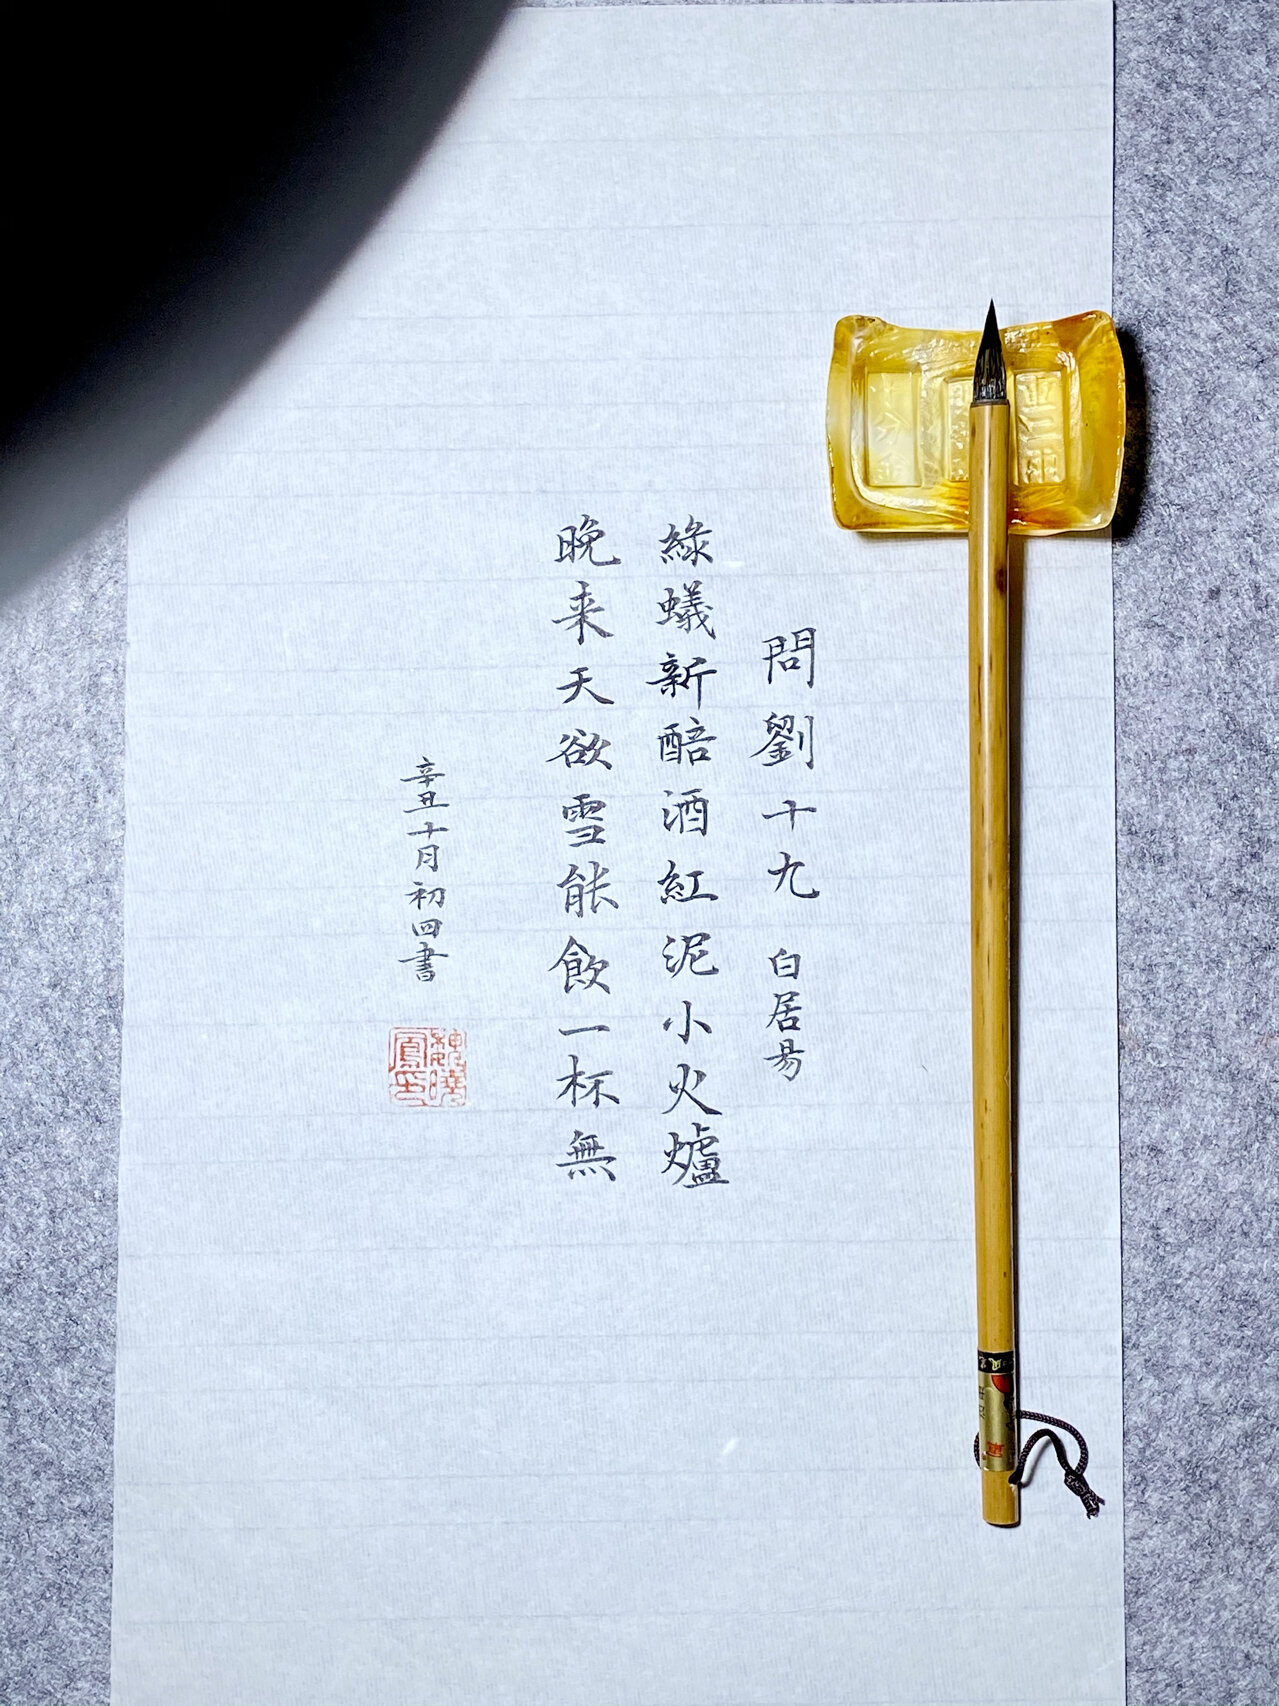 問劉十九 白居易
綠蟻新醅酒紅泥小火爐
晚来天欲雪能飲一杯無
辛丑十月初四書
魏曉鳳印